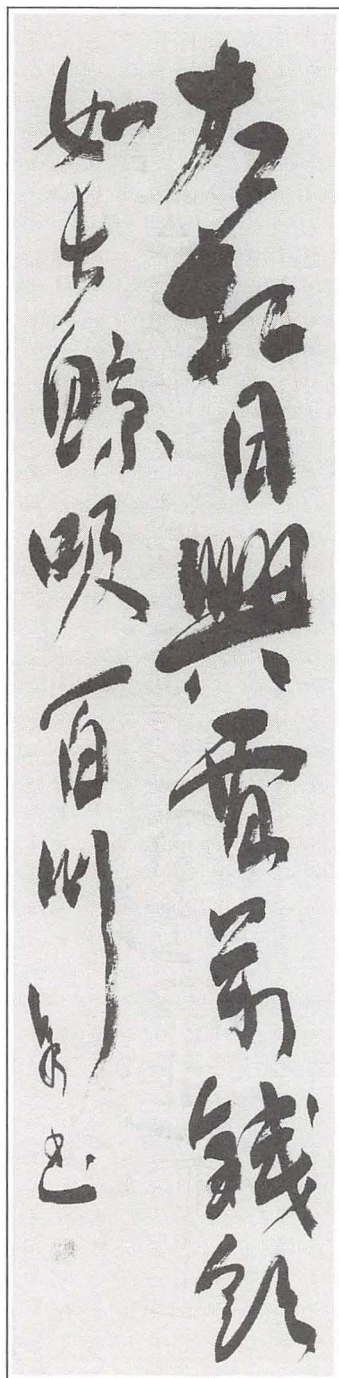 左相日興費萬錢飲
如長鯨吸百川 書